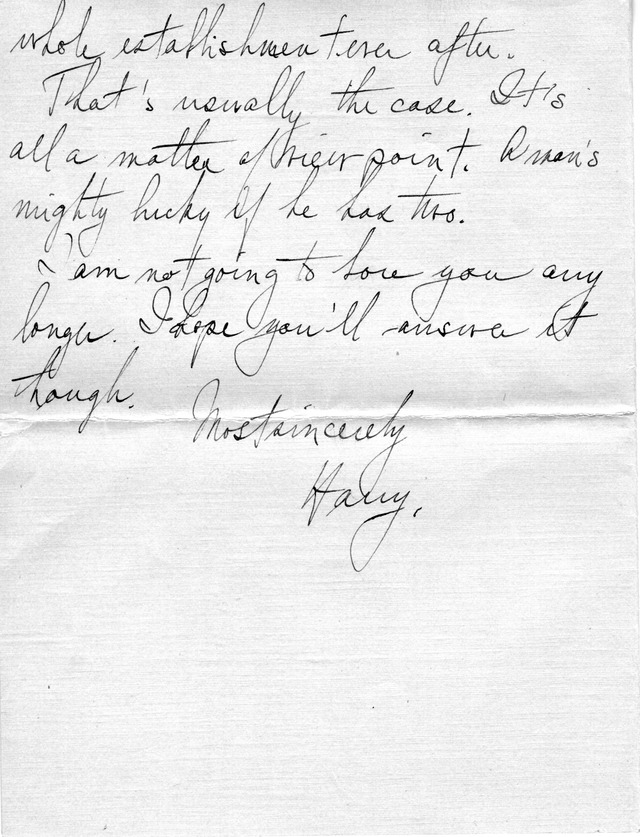 whole establishment ever after.
That's usually the case. It's
all a matter of view point. A man's
mighty lucky if he has two.
I am not going to bore you any
longer. I hope you'll answer it
though.
Most sincerely
Harry.